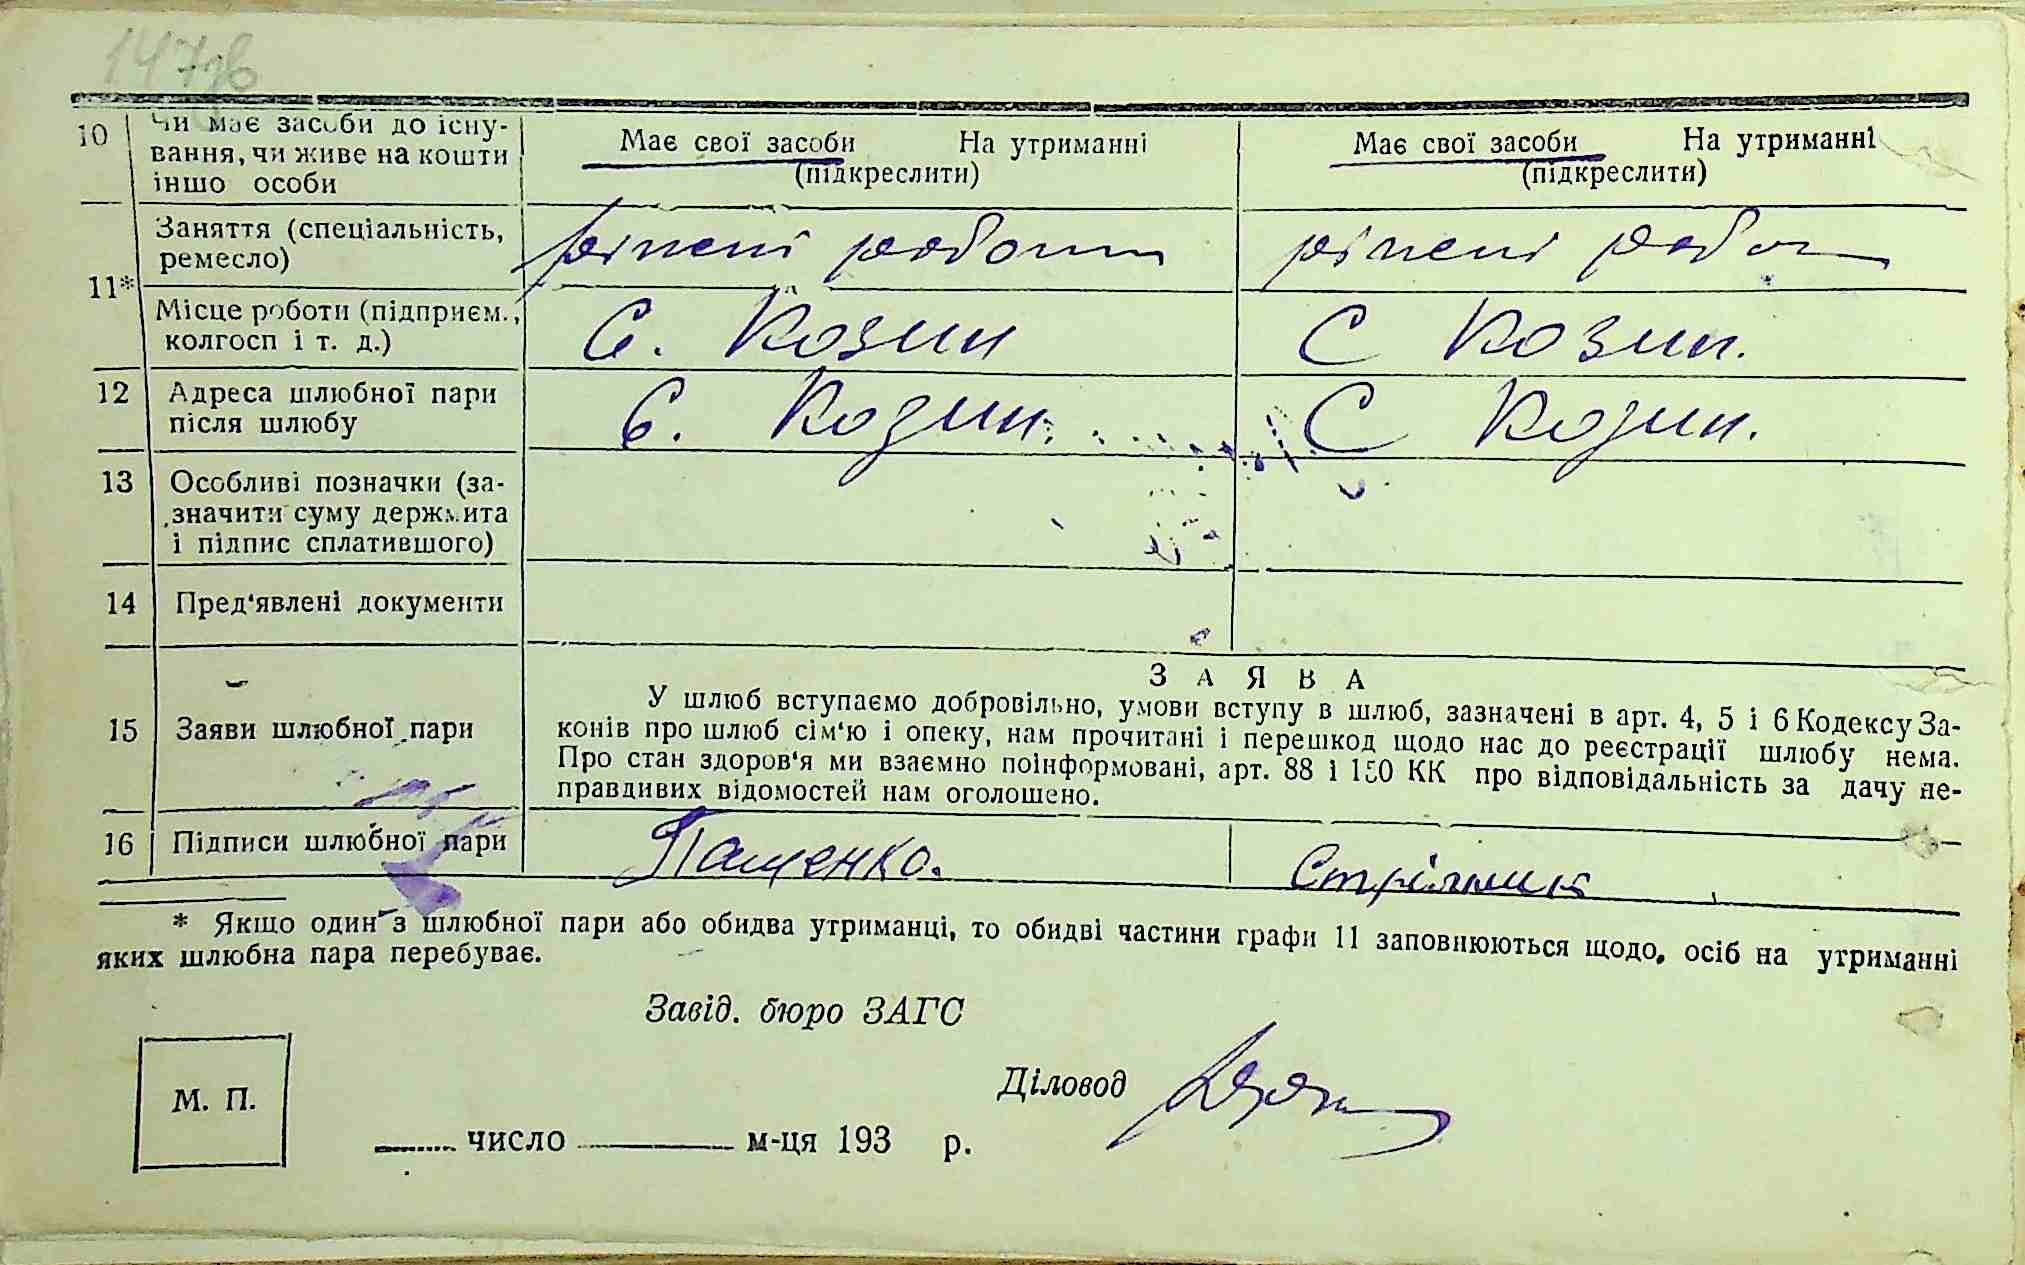 147зв
10 Чи має засоби до існу- Має свої засоби На утриманні Має свої засоби На утриманні
вання, чи живе на кошти (підкреслити) (підкреслити)
іншо особи
11*
Заняття (спеціальність, ремесло) рільні робот рільні робот
Місце роботи (підприєм., С. Козин С Козин.
колгосп і т. д.)
12 Адреса шлюбної пари С. Козин. С Козин.
після шлюбу
13 Особливі позначки (за-
значити суму держмита
і підпис сплатившого)
14 Пред'явлені документи
ЗАЯВА
15 Заяви шлюбної пари
У шлюб вступаємо добровільно, умови вступу в шлюб, зазначені в арт. 4, 5 і 6 Кодексу За-
конів про шлюб сім'ю і опеку, нам прочитані і перешкод щодо нас до реєстрації шлюбу нема.
Про стан здоров'я ми взаємно поінформовані, арт. 88 і 150 КК про відповідальність за дачу не-
правдивих відомостей нам оголошено.
16 Підписи шлюбної пари Пащенко. Стрільник
* Якщо один з шлюбної пари або обидва утриманці, то обидві частини графи 11 заповнюються щодо, осіб на утриманні
яких шлюбна пара перебуває.
Завід. бюро ЗАГС
Діловод
М. П.
число м-ця 193 р.